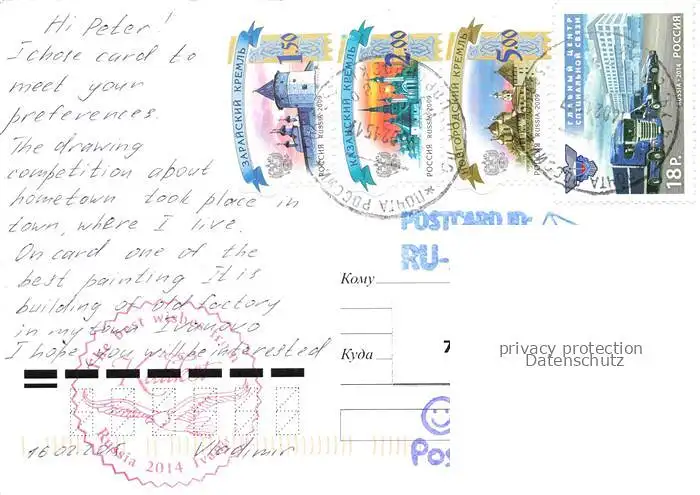 Hi Peter!
I chose card to
meet your
preferences.
The drawing
competition about
hometown took place in
town, where I live.
On card one of the
best painting It is
building of old factory
in my town Ivanovo
I hope you will be interested
16.02.2015 Vladimir
The best wishes from
Russia 2014 Ivanovo
ЗАРАЙСКИЙ КРЕМЛЬ
1.50
РОССИЯ RUSSIA 2009
КАЗАНСКИЙ КРЕМЛЬ
2.00
РОССИЯ RUSSIA 2009
НОВГОРОДСКИЙ КРЕМЛЬ
5.00
РОССИЯ
ГЛАВНЫЙ ЦЕНТР
СПЕЦИАЛЬНОЙ СВЯЗИ
РОССИЯ RUSSIA • 2014
18 Р.
ПОЧТА РОССИИ
POSTCARD ID:
RU-
Кому
Куда
7
privacy protection
Datenschutz
Pos